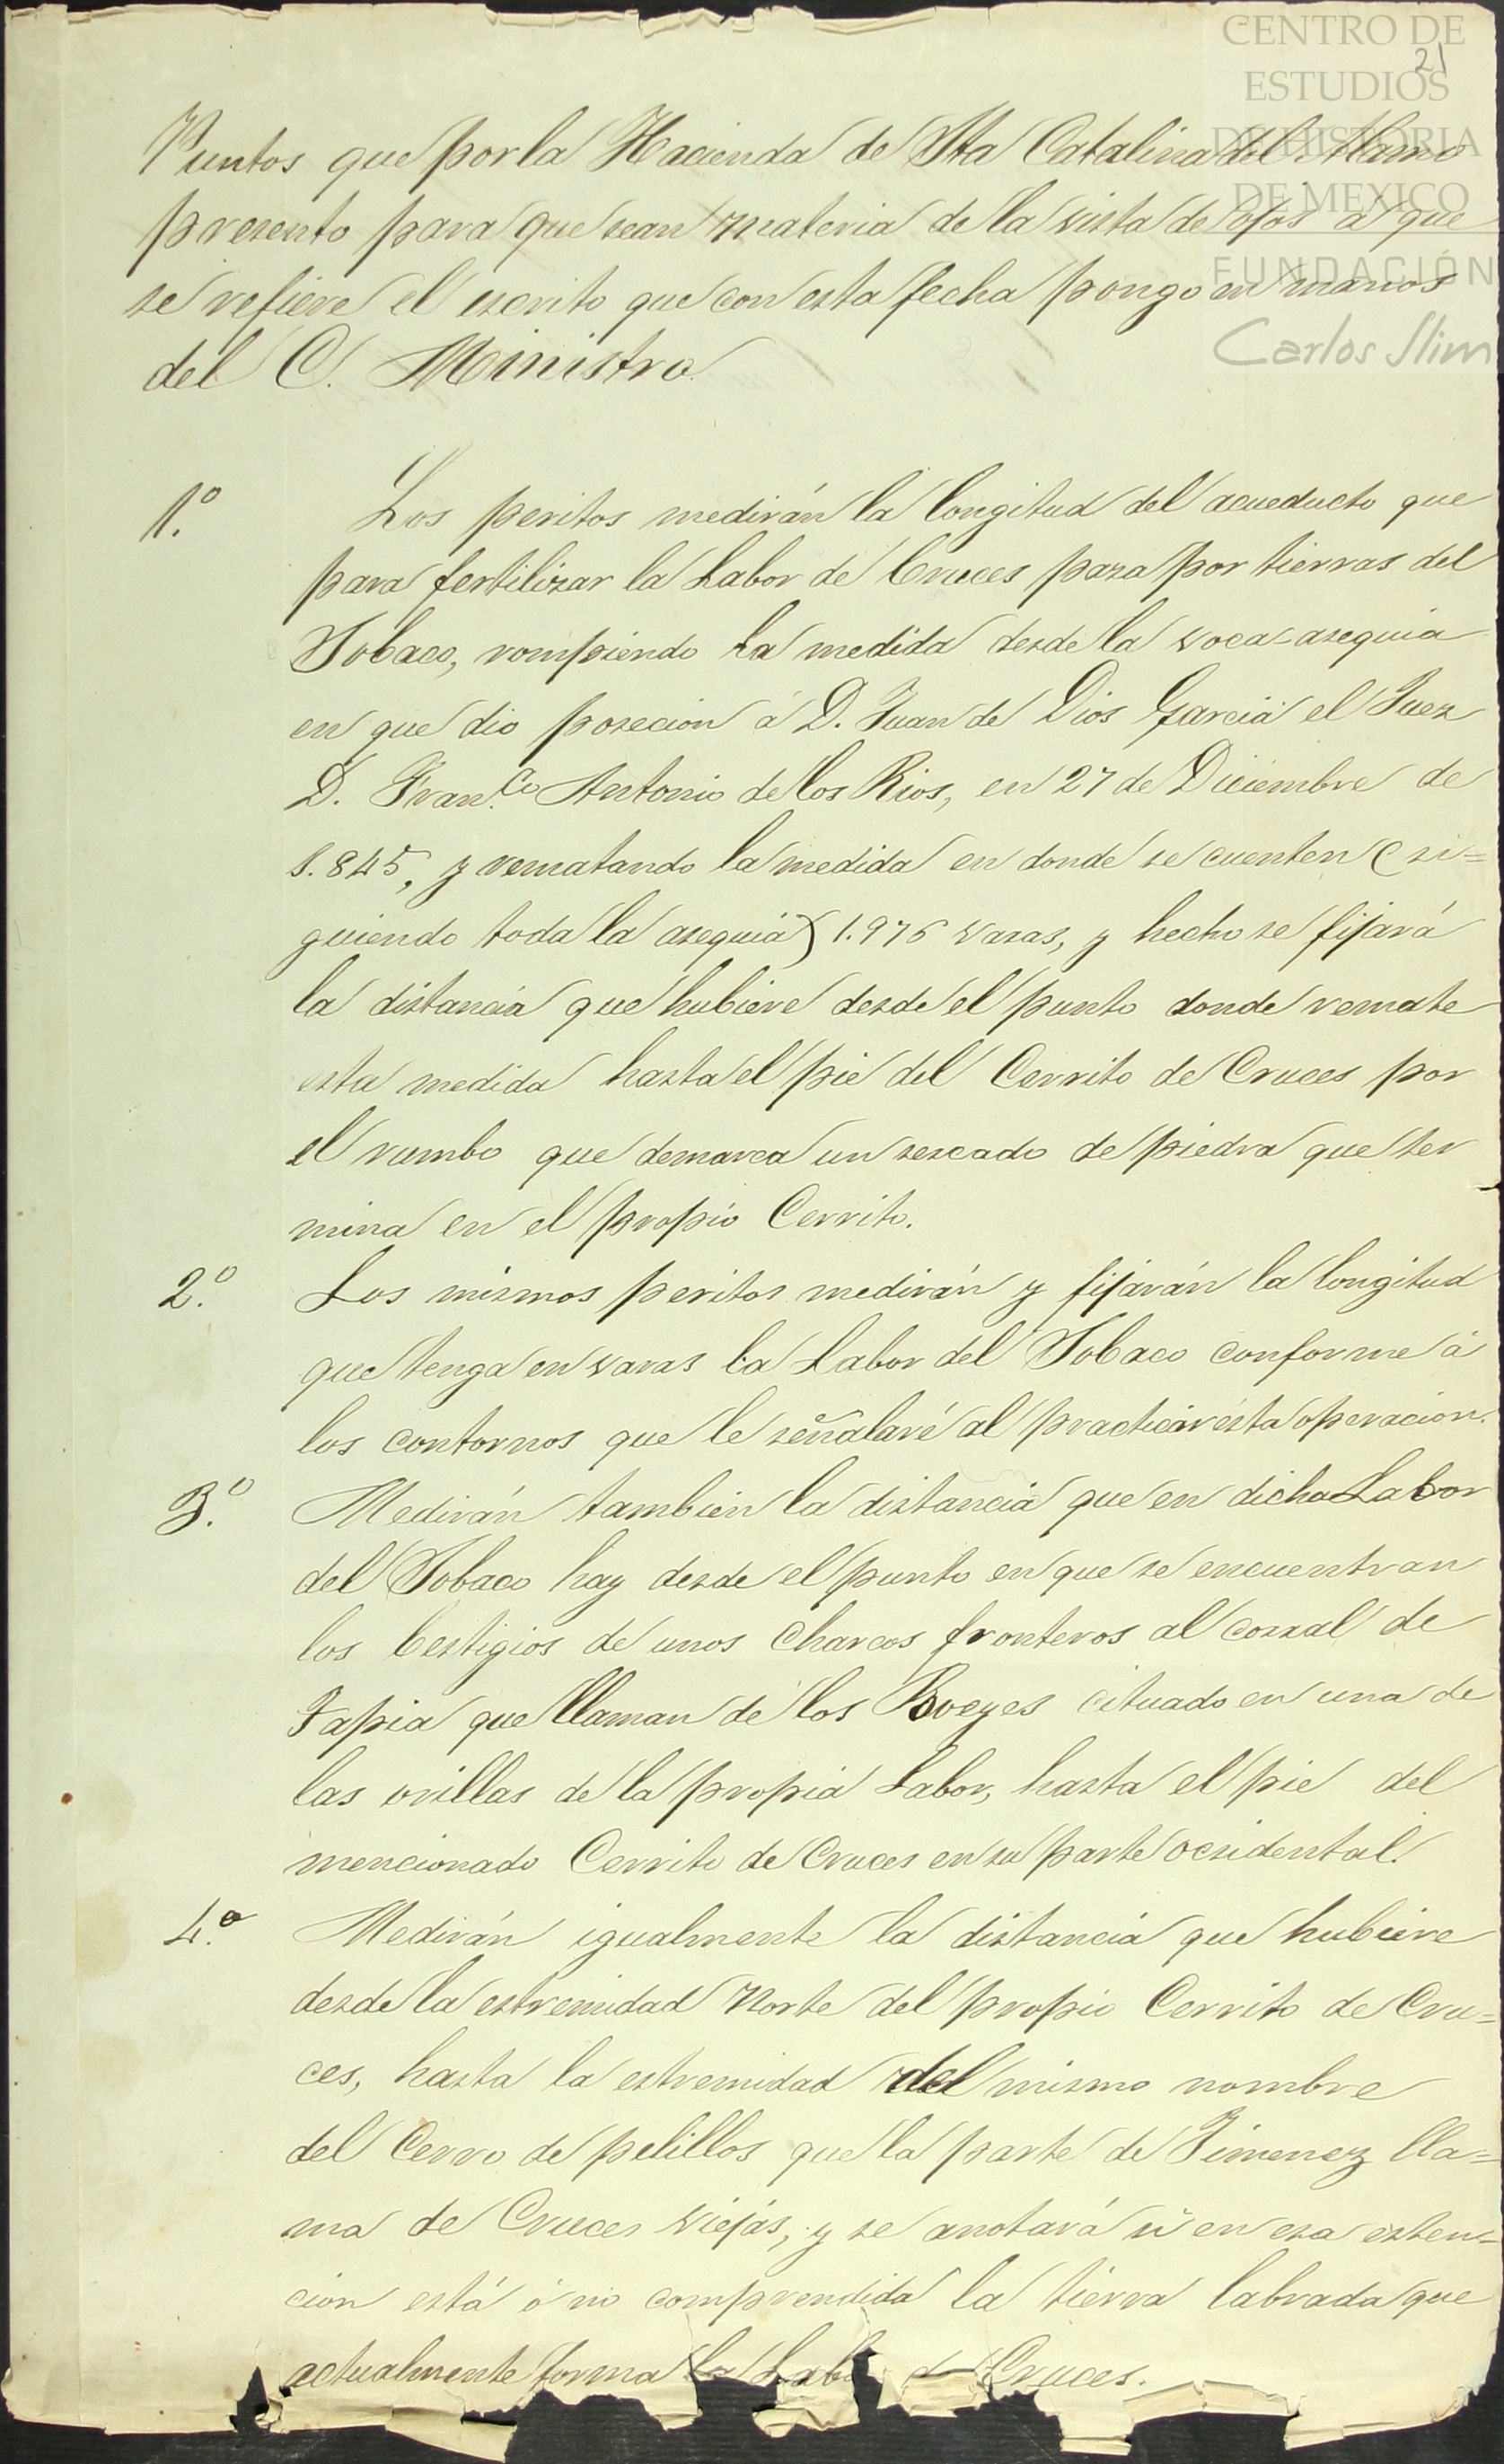 CENTRO DE
ESTUDIOS
DE HISTORIA
DE MEXICO
FUNDACIÓN
Carlos Slim
21
Puntos que por la Hacienda de Sta Catalina del Alamo
presento para que sean materia de la vista de ojos á que
se refiere el escrito que con esta fecha pongo en manos
del C. Ministro.
1.º Los peritos medirán la longitud del acueducto que
para fertilizar la Labor de Cruces pasa por tierras del
Tobaco, rompiendo la medida desde la voca-asequia
en que dio posecion á D. Juan de Dios Garcia el Juez
D. Fran.co Antonio de los Rios, en 27 de Diciembre de
1.845, y rematando la medida en donde se cuenten (si=
guiendo toda la asequia) 1.976 varas, y hecho se fijará
la distancia que hubiere desde el punto donde remate
esta medida hasta el pie del Cerrito de Cruces por
el rumbo que demarca un sercado de piedra que ter
mina en el propio Cerrito.
2.º Los mismos peritos medirán y fijarán la longitud
que tenga en varas la Labor del Tobaco conforme á
los contornos que le señalaré al practicar esta operacion.
3.º Medirán tambien la distancia que en dicha Labor
del Tobaco hay desde el punto en que se encuentran
los bestigios de unos charcos fronteros al corral de
Tapia que llaman de los Bueyes cituado en una de
las orillas de la propia Labor, hasta el pie del
mencionado Cerrito de Cruces en su parte ocsidental.
4.º Medirán igualmente la distancia que hubiere
desde la estremidad Norte del propio Cerrito de Cru=
ces, hasta la estremidad del mismo nombre
del Cerro de pelillos que la parte de Jimenez lla=
ma de Cruces viejas, y se anotará si en esa esten=
cion está ó no comprendida la tierra labrada que
actualmente forma la Labor de Cruces.